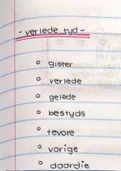 - verlede tyd -
gister
verlede
gelede
bestyds
tevore
vorige
daardie